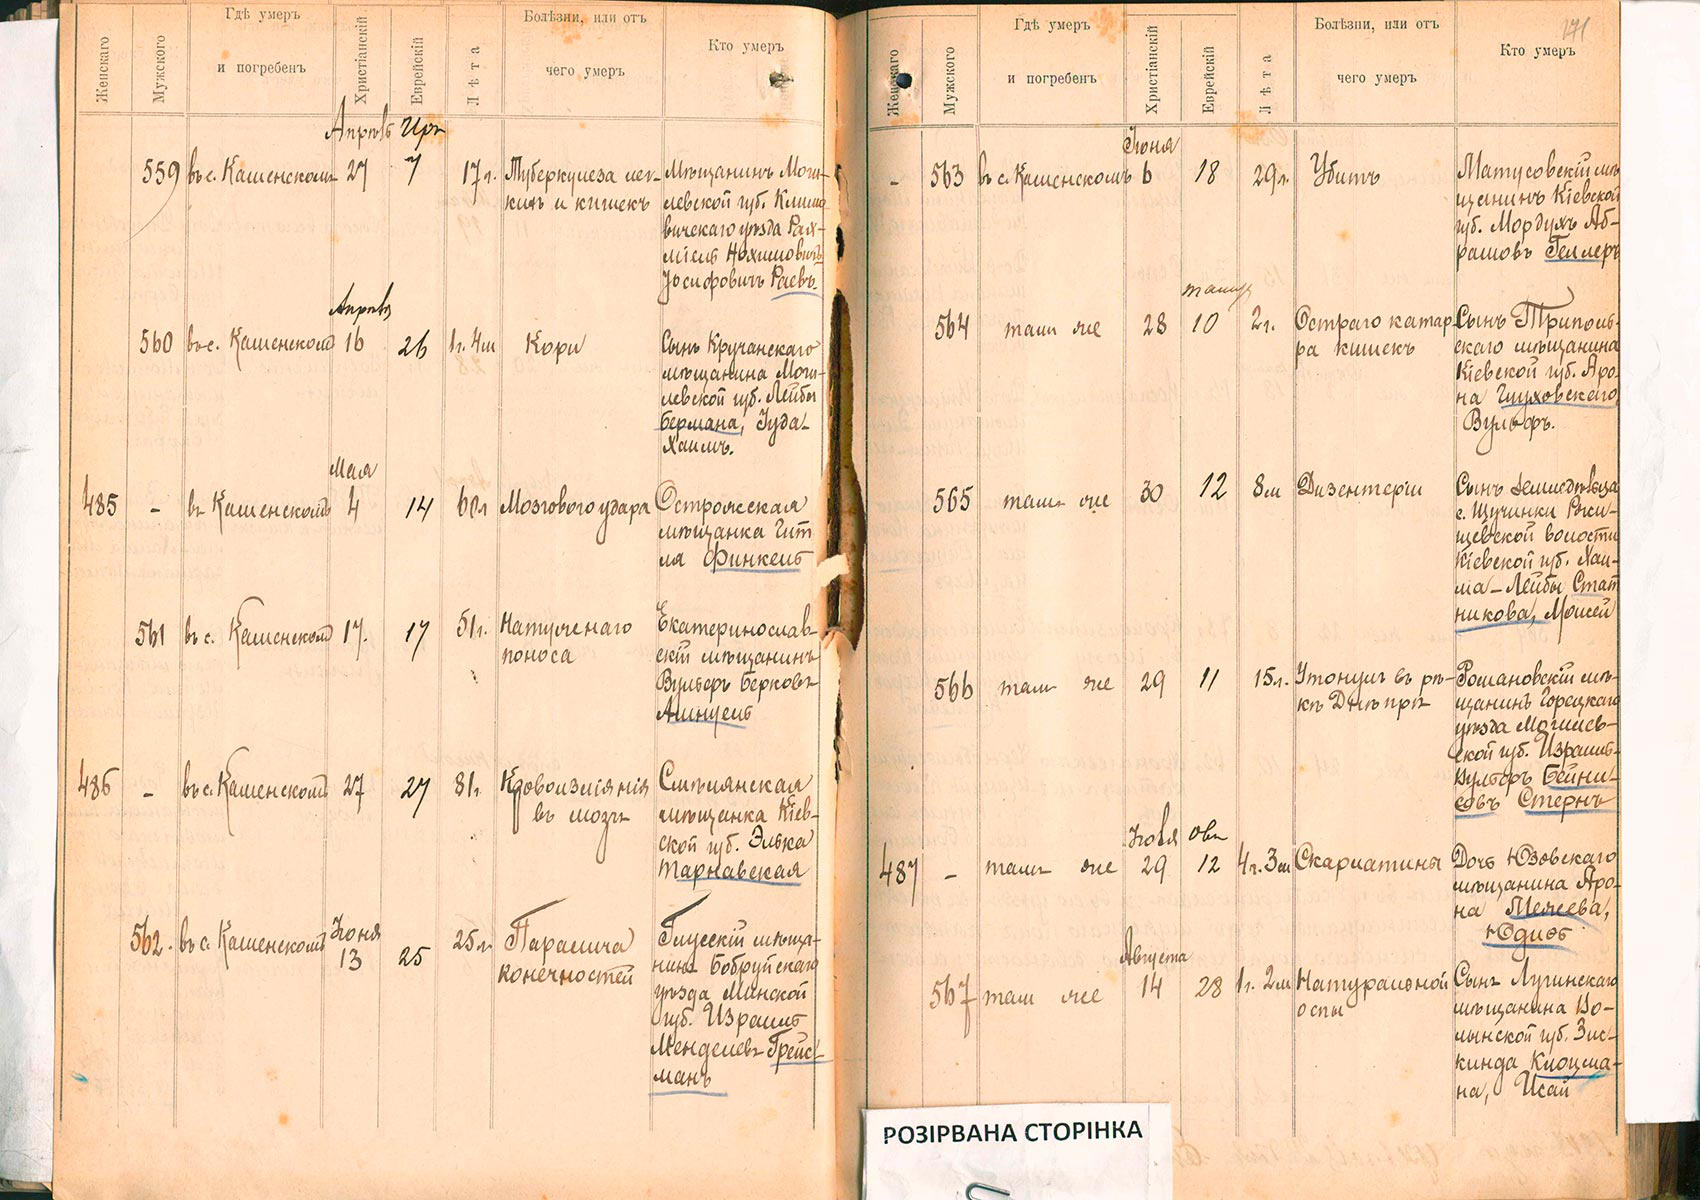 Женскаго
Мужского
Гдѣ умеръ
и погребенъ
Христіанскій
Еврейскій
Лѣта
Болѣзни, или отъ
чего умеръ
Кто умеръ
Апрѣль
559 въ с. Каменскомъ 27 7 17 г. Туберкулеза лег-
кихъ и кишекъ
Мѣщанинъ Моги-
левской губ. Клима-
вичскаго уѣзда
Іосифовичъ Раевъ.
Апрѣль
560 въ с. Каменскомъ 16 26 1 г. 4 м Кори
Сынъ Кручанскаго
мѣщанина Моги-
левской губ. Лейбы
Бермана, Іуда-
Хаимъ.
Мая
485 - въ Каменскомъ 4 14 60 л Мозгового удара
Острожская
мѣщанка Гит
ля Финкель
561 въ с. Каменскомъ 17. 17 51 г.
поноса
Екатеринослав-
скій мѣщанинъ
Вульфъ Берковъ
486 - въ с. Каменскомъ 27 27 81 г. Кровоизліянія
въ мозгъ
Смѣлянская
мѣщанка Кіев-
ской губ. Элька
Тарнавская
Іюня
562. въ с. Каменскомъ 13 25 25 л. Паралича
конечностей
Глусскій мѣща-
нинъ Бобруйскаго
уѣзда Минской
губ. Израиль
Менделевъ Грейс-
манъ
171
Женскаго
Мужского
Гдѣ умеръ
и погребенъ
Христіанскій
Еврейскій
Лѣта
Болѣзни, или отъ
чего умеръ
Кто умеръ
Іюня
- 563 въ с. Каменскомъ 6 18 29 л. Убитъ
Матусовскій мѣ-
щанинъ Кіевской
губ. Мордухъ Аб-
рамовъ Геллеръ
564 тамъ же 28 10 2 г. Остраго катар-
ра кишекъ
Сынъ Триполь-
скаго мѣщанина
Кіевской губ. Аро-
на Глуховскаго,
Вульфъ.
565 тамъ же 30 12 8 м Дизентеріи
Сынъ земледѣльца
с. Щучинки Ржи-
щевской волости
Кіевской губ. Хаи-
ма-Лейбы Стат
никова, Мошей
566 тамъ же 29 11 15 л. Утонулъ въ рѣ-
кѣ Днѣпрѣ
Романовскій мѣ-
щанинъ Горецкаго
уѣзда Могилев-
ской губ. Израиль-
Вульфъ Бейни-
совъ Стернъ
487 - тамъ же 29 12 4 г. 3 м Скарлатины
Дочь Юзовскаго
мѣщанина Аро-
на Межеева,
Юдиѳь
Августа
567 тамъ же 14 28 1 г. 2 м Натуральной
оспы
Сынъ Лугинскаго
мѣщанина Во-
лынской губ. Зис-
кинда Клоцма-
на, Исай
РОЗІРВАНА СТОРІНКА